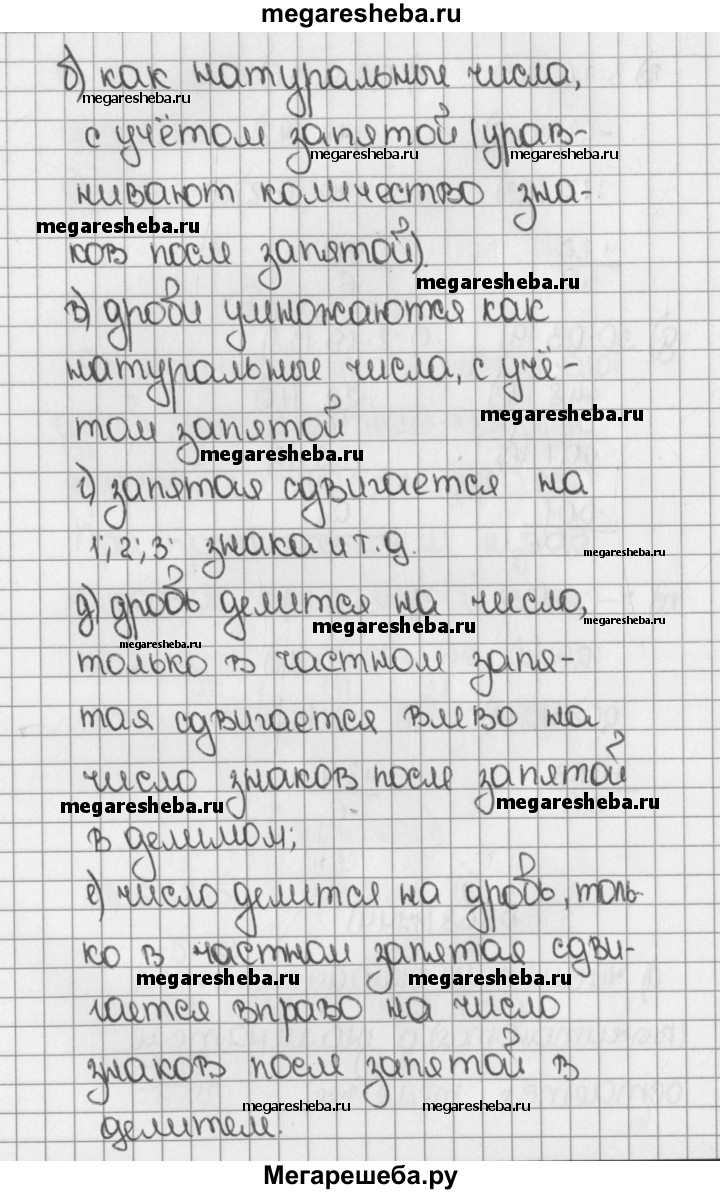 megaresheba.ru
б) как натуральные числа,
megaresheba.ru
с учётом запятой (урав-
megaresheba.ru megaresheba.ru
нивают количество зна-
megaresheba.ru
ков после запятой).
megaresheba.ru
в) дроби умножаются как
натуральные числа, с учё-
megaresheba.ru
том запятой
megaresheba.ru
г) запятая сдвигается на
1; 2; 3; знака и т.д.
megaresheba.ru
д) дробь делится на число,
megaresheba.ru megaresheba.ru
megaresheba.ru
только в частном запя-
тая сдвигается влево на
число знаков после запятой
megaresheba.ru megaresheba.ru
в делимом;
е) число делится на дробь, толь-
ко в частном запятая сдви-
megaresheba.ru megaresheba.ru
гается вправо на число
знаков после запятой в
megaresheba.ru megaresheba.ru
делителе.
Мегарешеба.ру